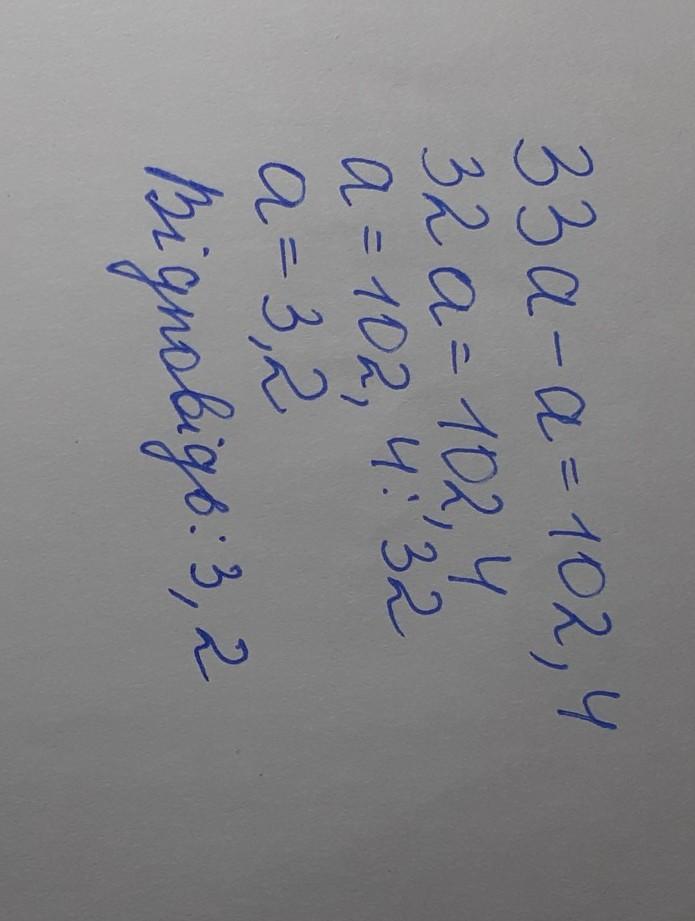 33a-a=102,4
32a=102,4
a=102,4:32
a=3,2
Відповідь:3,2